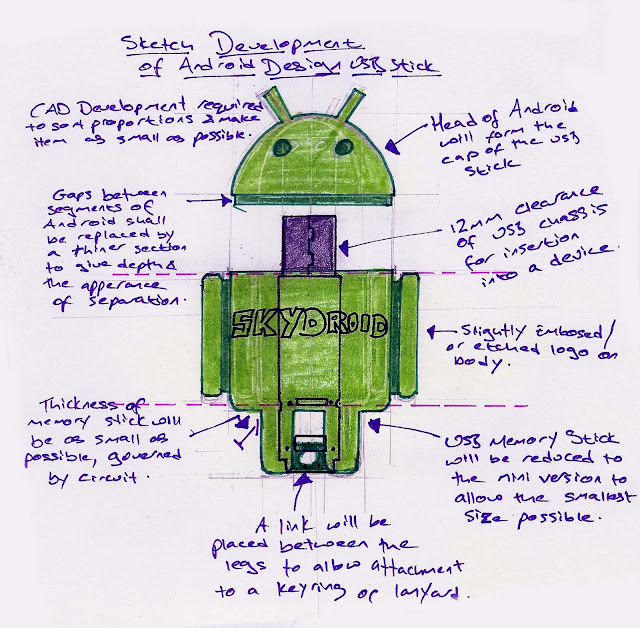 Sketch Development
of Android Design USB Stick
CAD Development required
to sort proportions & make
item as small as possible.
Head of Android
will form the
cap of the USB
Stick
Gaps between
segments of
Android shall
be replaced by
a thiner section
to give depth &
the apperance
of separation.
12mm clearance
of USB chassis
for insertion
into a device.
SKYDROID
Slightly Embosed/
or etched logo on
body.
Thickness of
memory stick will
be as small as
possible, governed
by circuit.
USB Memory Stick
will be reduced to
the mini version to
allow the smallest
size possible.
A link will be
placed between the
legs to allow attachment
to a keyring or lanyard.